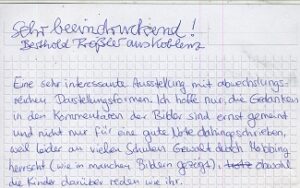 Sehr beeindruckend!
Berthold Preßler aus Koblenz
Eine sehr interessante Ausstellung mit abwechslungs-
reichen Darstellungsformen. Ich hoffe nur, die Gedanken
in den Kommentaren der Bilder sind ernst gemeint
und nicht nur für eine gute Note dahingeschrieben,
weil leider an vielen Schulen Gewalt durch Mobbing
herrscht (wie in manchen Bildern gezeigt), obwohl
die Kinder darüber reden wie ihr.